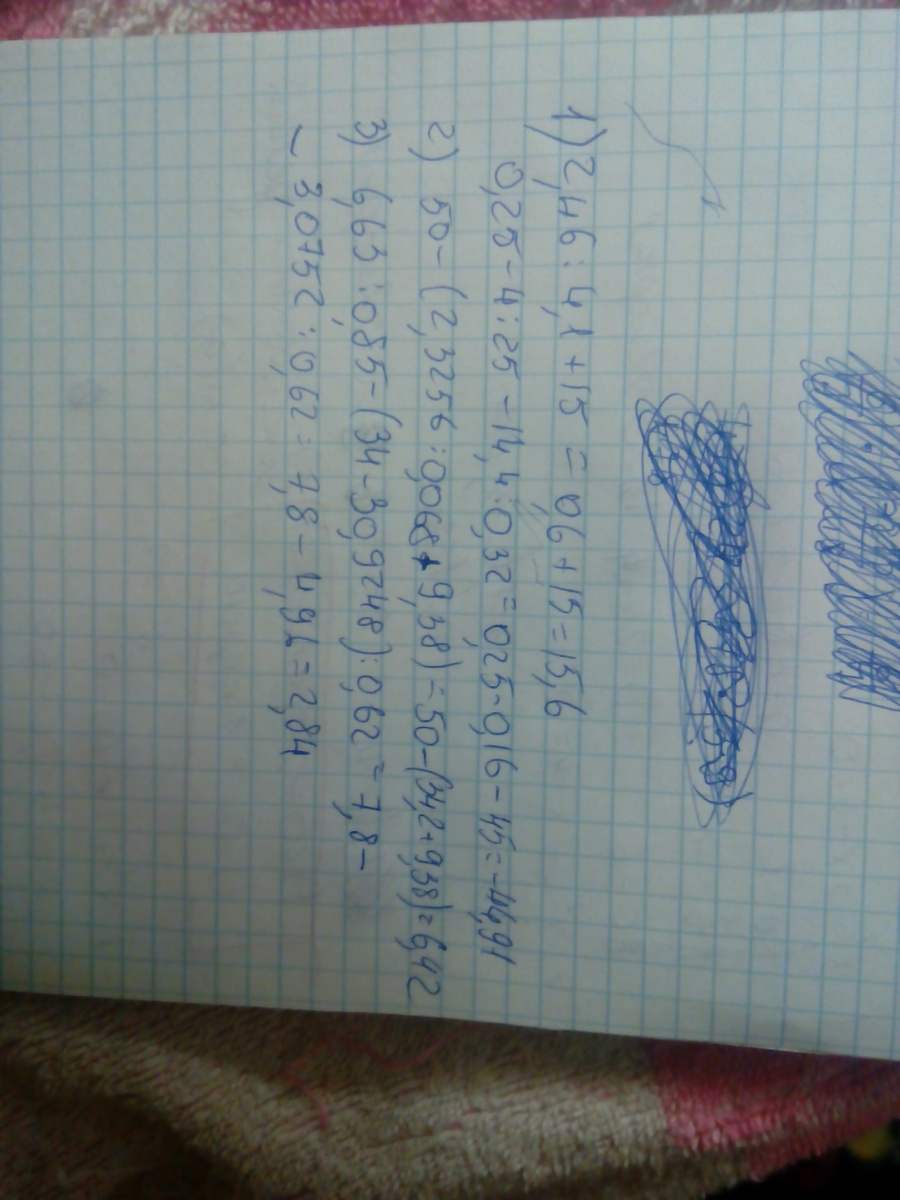 1) 2,46 : 4,1 + 15 = 0,6 + 15 = 15,6
0,25 - 4 : 25 - 14,4 : 0,32 = 0,25 - 0,16 - 45 = -44,91
2) 50 - (2,3256 : 0,068 + 9,38) = 50 - (34,2 + 9,38) = 6,42
3) 6,63 : 0,85 - (34 - 30,9248) : 0,62 = 7,8 -
- 3,0752 : 0,62 = 7,8 - 4,96 = 2,84